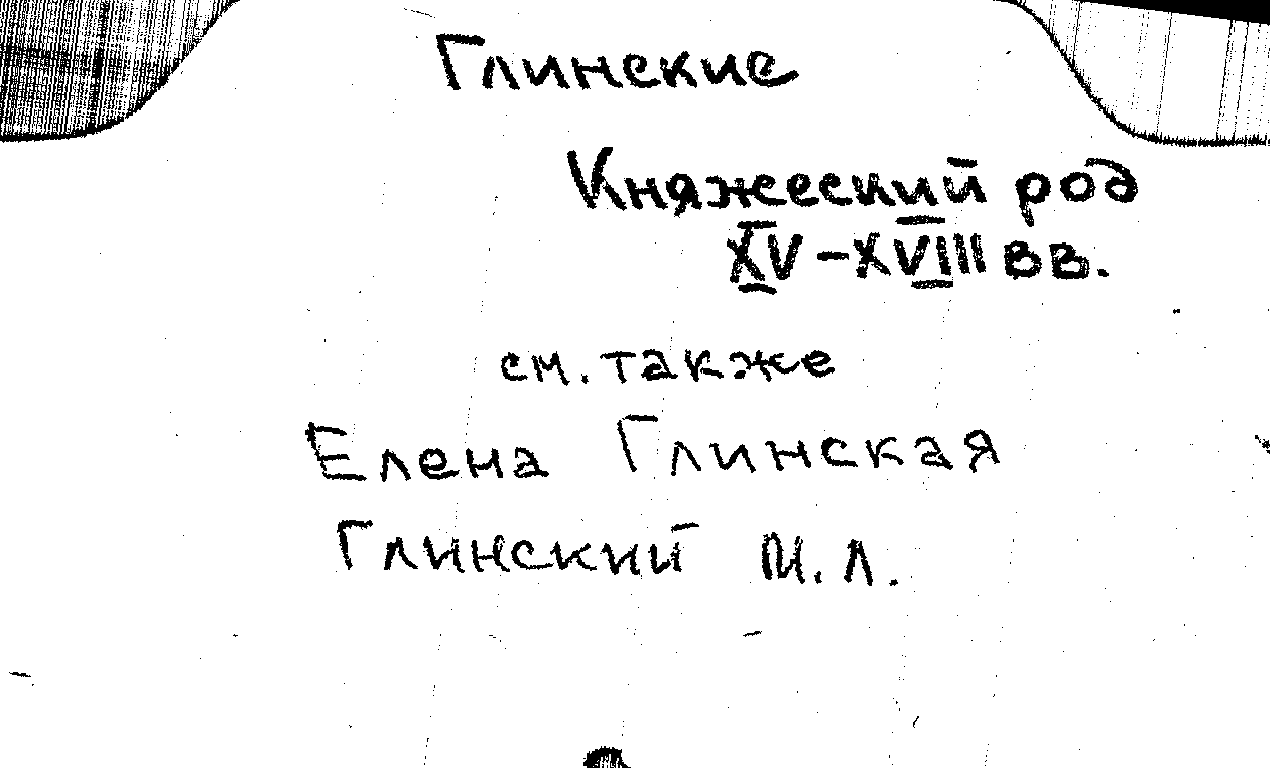 Глинские
Княжеский род
XV-XVIII вв.
см. также
Елена Глинская
Глинский М. Л.